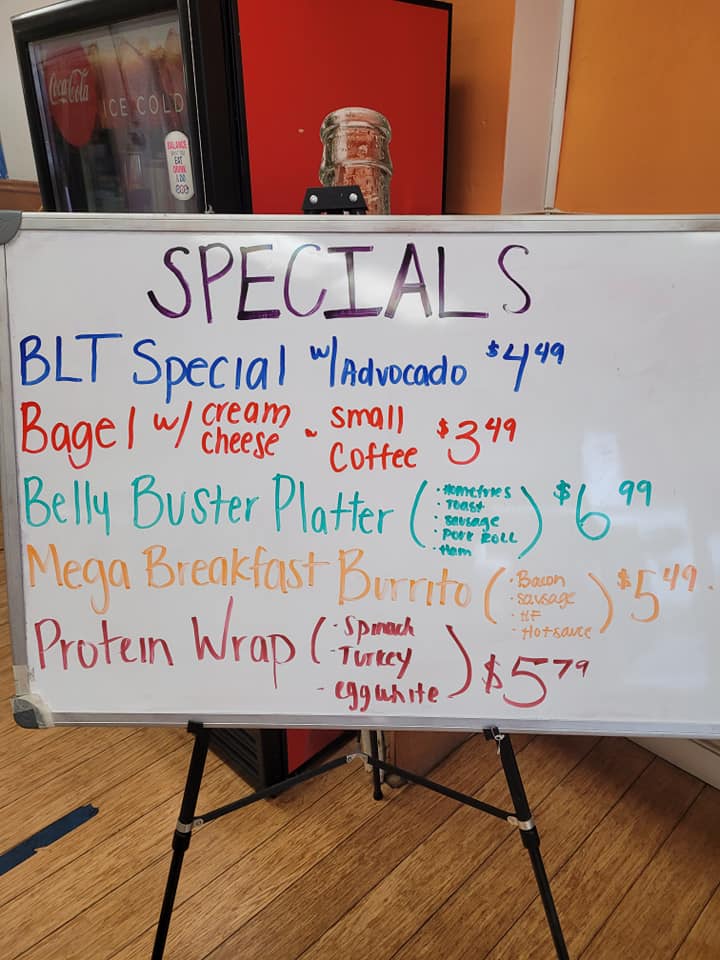 Coca-Cola
ICE COLD
BALANCE
WHAT YOU
EAT
DRINK
& DO
SPECIALS
BLT Special w/ Advocado $4.49
Bagel w/ cream cheese ~ small Coffee $3.49
Belly Buster Platter ( $6.99
· Homefries
· Toast
· sausage
· Pork Roll
· Ham )
Mega Breakfast Burrito ( $5.49
· Bacon
· sausage
· HF
· Hot sauce )
Protein Wrap ( $5.79
· Spinach
· Turkey
- egg white )